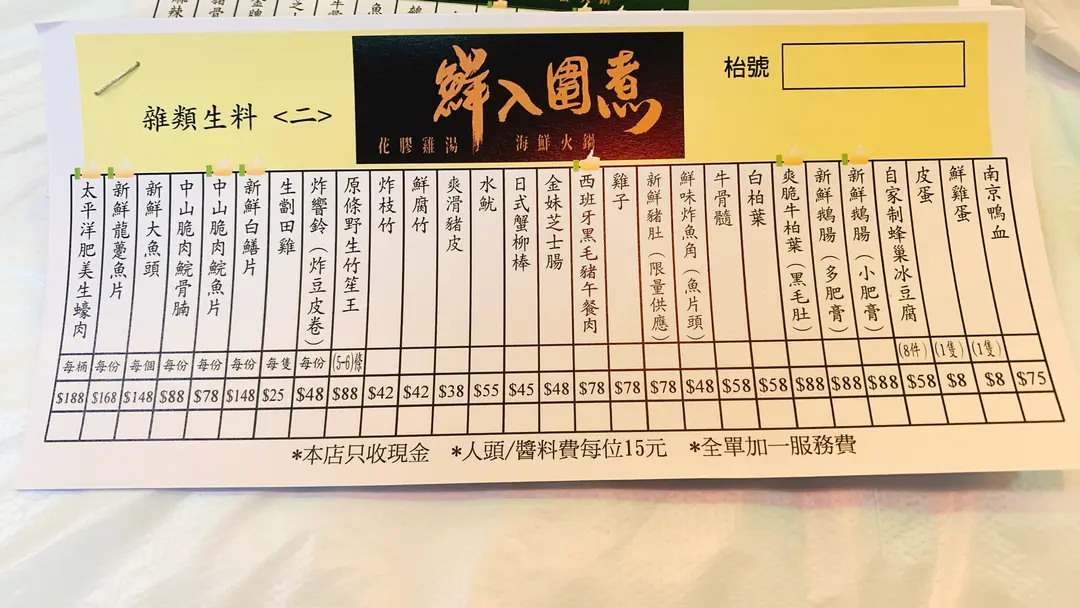 雜類生料 <二>
鮮入圍煮
花膠雞湯 海鮮火鍋
枱號
太平洋肥美生蠔肉
每桶
$188
新鮮龍躉魚片
每份
$168
新鮮大魚頭
每個
$148
中山脆肉鯇骨腩
每份
$88
中山脆肉鯇魚片
每份
$78
新鮮白鱔片
每份
$148
生劏田雞
每隻
$25
炸響鈴(炸豆皮卷)
每份
$48
原條野生竹笙王
(5-6)條
$88
炸枝竹
$42
鮮腐竹
$42
爽滑豬皮
$38
水魷
$55
日式蟹柳棒
$45
金妹芝士腸
$48
西班牙黑毛豬午餐肉
$78
雞子
$78
新鮮豬肚(限量供應)
$78
鮮味炸魚角(魚片頭)
$48
牛骨髓
$58
白柏葉
$58
爽脆牛柏葉(黑毛肚)
$88
新鮮鵝腸(多肥膏)
$88
新鮮鵝腸(小肥膏)
$88
自家制蜂巢冰豆腐
(8件)
$58
皮蛋
(1隻)
$8
鮮雞蛋
(1隻)
$8
南京鴨血
$75
*本店只收現金 *人頭/醬料費每位15元 *全單加一服務費